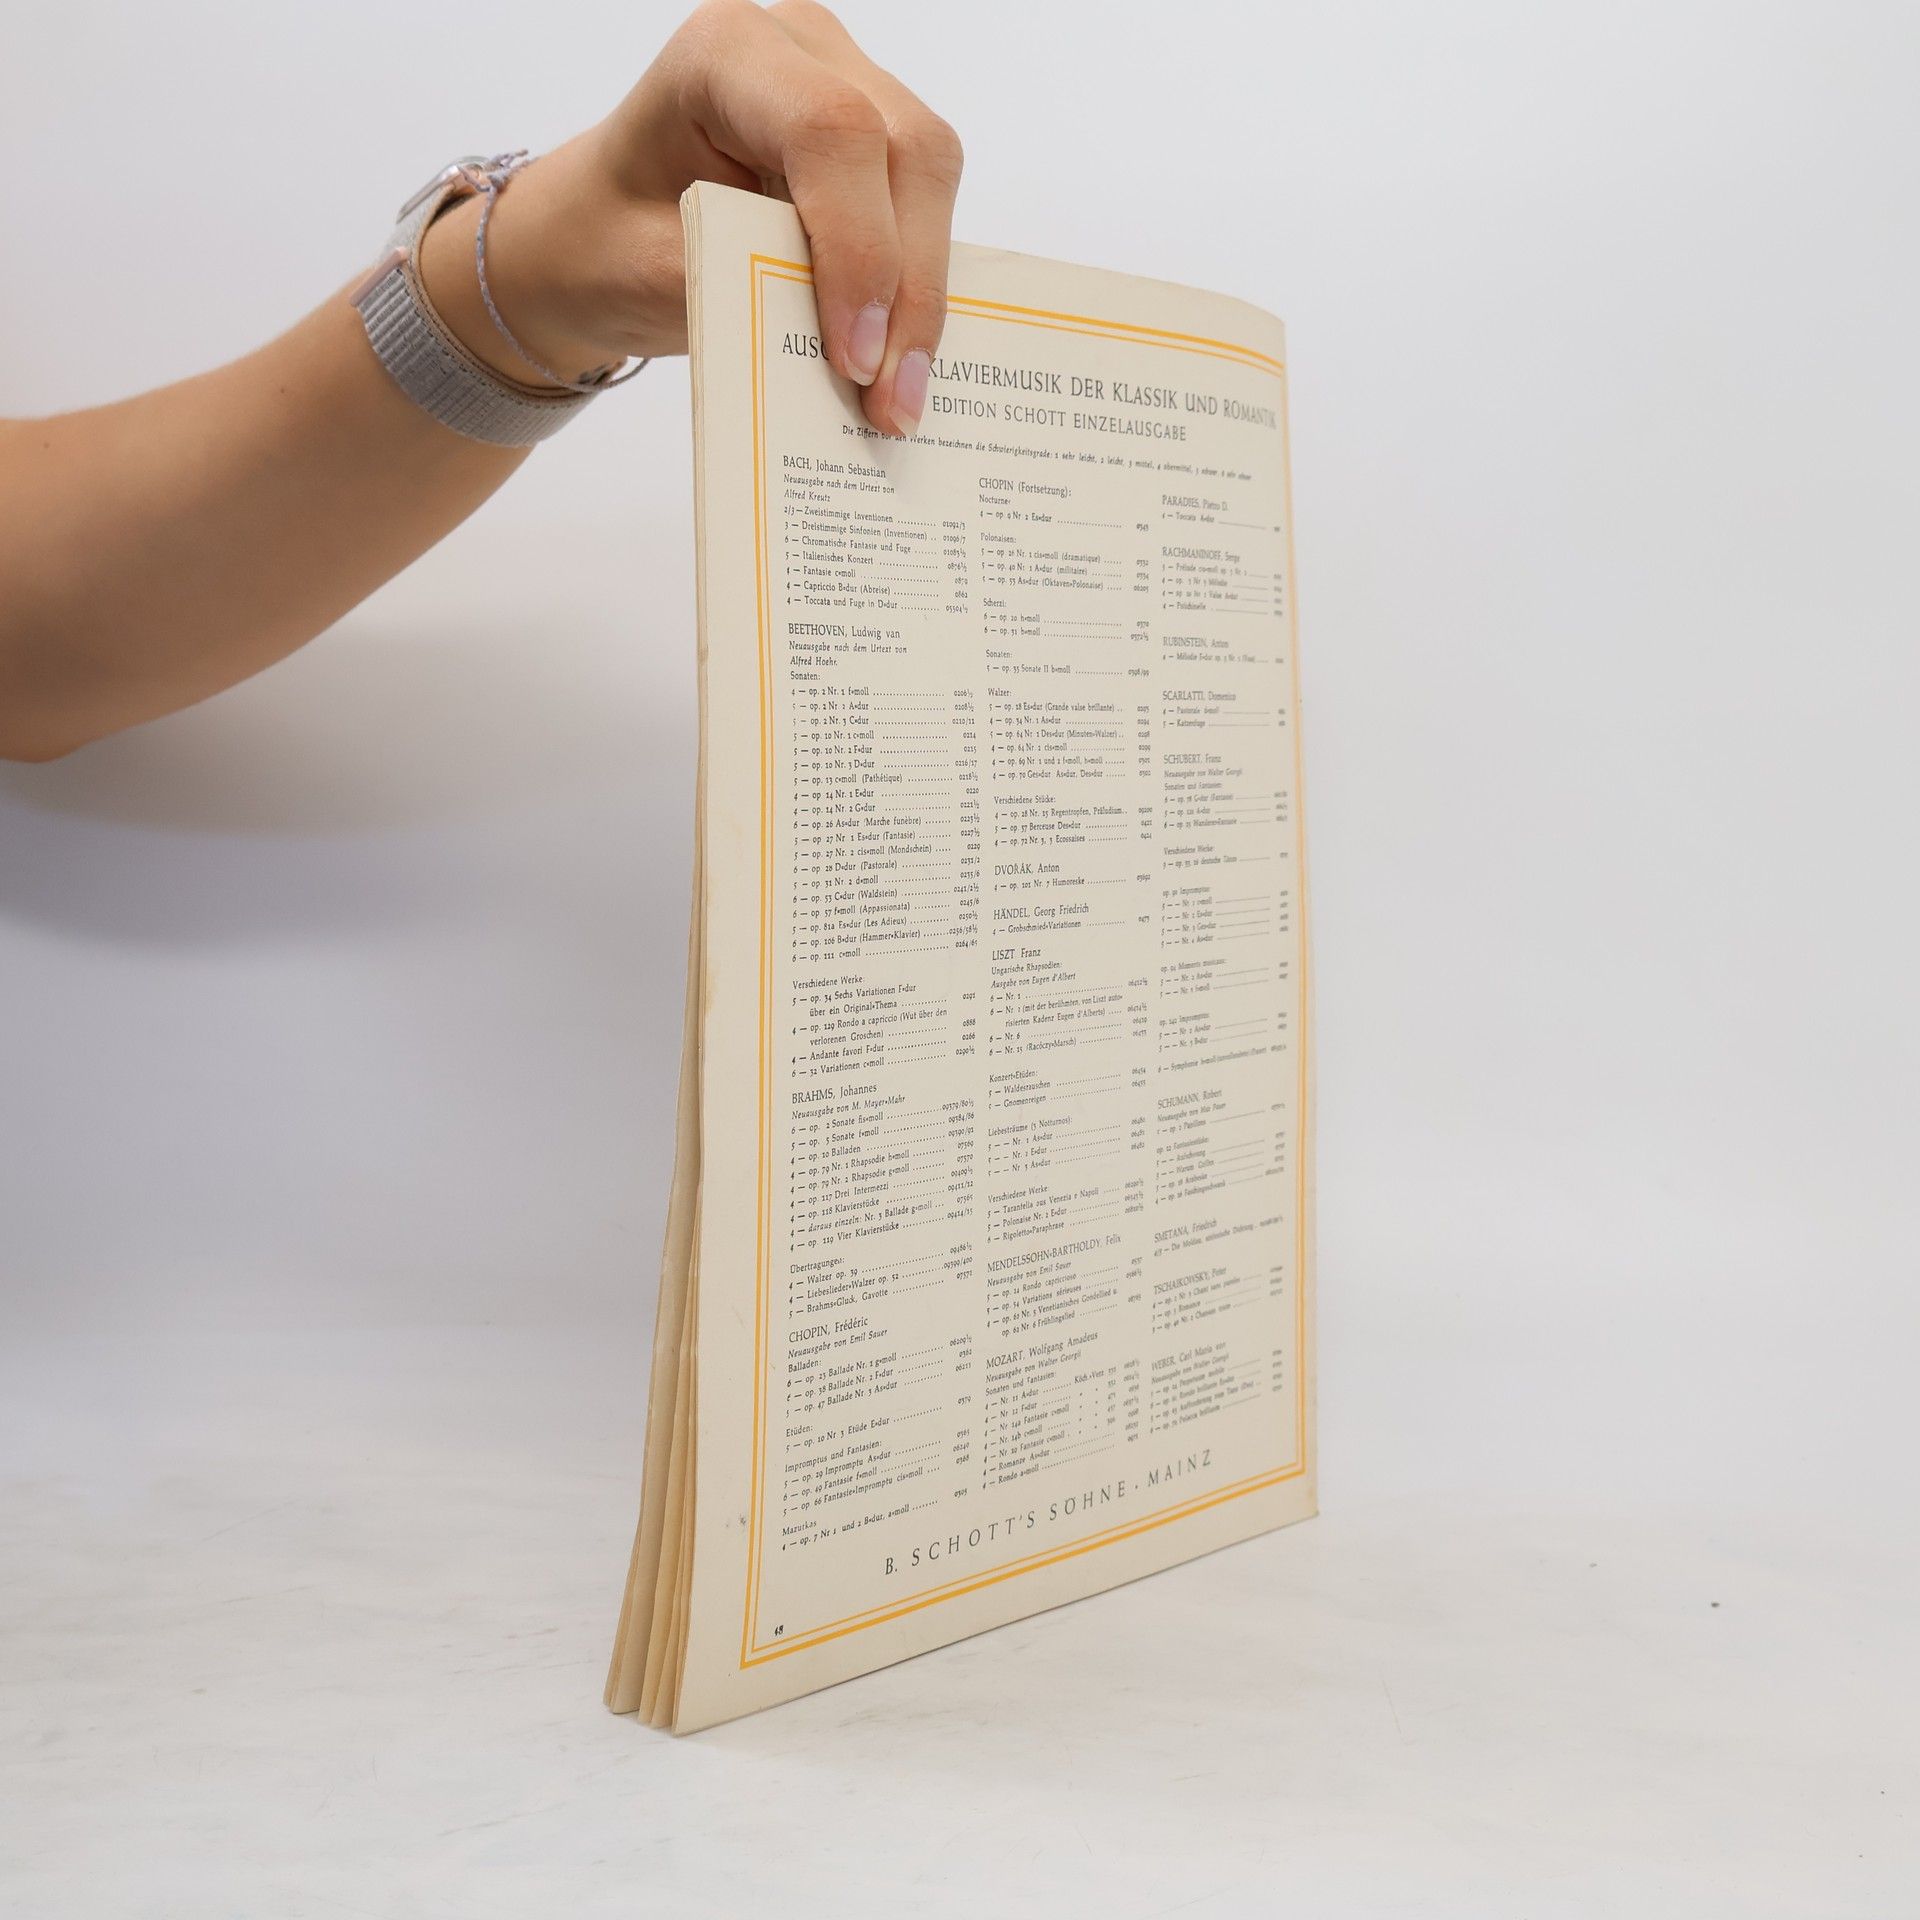 KLAVIERMUSIK DER KLASSIK UND ROMANTIK
EDITION SCHOTT EINZELAUSGABE
Die Ziffern vor den Werken bezeichnen die Schwierigkeitsgrade: 1 sehr leicht, 2 leicht, 3 mittel, 4 obermittel, 5 schwer, 6 sehr schwer
BACH, Johann Sebastian
Neuausgabe nach dem Urtext von
Alfred Kreutz
2/3 — Zweistimmige Inventionen 01092/3
3 — Dreistimmige Sinfonien (Inventionen) 01096/7
6 — Chromatische Fantasie und Fuge 01085½
5 — Italienisches Konzert 0876½
4 — Fantasie c=moll 0879
4 — Capriccio B=dur (Abreise) 0862
4 — Toccata und Fuge in D=dur 05504½
BEETHOVEN, Ludwig van
Neuausgabe nach dem Urtext von
Alfred Hoehr.
Sonaten:
4 — op. 2 Nr. 1 f=moll 0206½
5 — op. 2 Nr. 2 A=dur 0208½
5 — op. 2 Nr. 3 C=dur 0210/11
5 — op. 10 Nr. 1 c=moll 0214
5 — op. 10 Nr. 2 F=dur 0215
5 — op. 10 Nr. 3 D=dur 0216/17
5 — op. 13 c=moll (Pathétique) 0218½
4 — op. 14 Nr. 1 E=dur 0220
4 — op. 14 Nr. 2 G=dur 0221½
6 — op. 26 As=dur (Marche funèbre) 0223½
5 — op. 27 Nr. 1 Es=dur (Fantasie) 0227½
5 — op. 27 Nr. 2 cis=moll (Mondschein) 0229
6 — op. 28 D=dur (Pastorale) 0231/2
5 — op. 31 Nr. 2 d=moll 0235/6
6 — op. 53 C=dur (Waldstein) 0241/2½
6 — op. 57 f=moll (Appassionata) 0245/6
5 — op. 81a Es=dur (Les Adieux) 0250½
6 — op. 106 B=dur (Hammer=Klavier) 0256/58½
6 — op. 111 c=moll 0264/65
Verschiedene Werke:
5 — op. 34 Sechs Variationen F=dur
über ein Original=Thema 0291
4 — op. 129 Rondo a capriccio (Wut über den
verlorenen Groschen) 0888
4 — Andante favori F=dur 0266
6 — 32 Variationen c=moll 0290½
BRAHMS, Johannes
Neuausgabe von M. Mayer=Mahr
6 — op. 2 Sonate fis=moll 09379/80½
5 — op. 5 Sonate f=moll 09384/86
4 — op. 10 Balladen 09390/92
4 — op. 79 Nr. 1 Rhapsodie h=moll 07569
4 — op. 79 Nr. 2 Rhapsodie g=moll 07570
4 — op. 117 Drei Intermezzi 09409½
4 — op. 118 Klavierstücke 09411/12
4 — daraus einzeln: Nr. 3 Ballade g=moll 07565
4 — op. 119 Vier Klavierstücke 09414/15
Übertragungen:
4 — Walzer op. 39 09486½
4 — Liebeslieder=Walzer op. 52 09399/400
5 — Brahms=Gluck, Gavotte 07571
CHOPIN, Frédéric
Neuausgabe von Emil Sauer
Balladen:
6 — op. 23 Ballade Nr. 1 g=moll 06209½
op. 38 Ballade Nr. 2 F=dur 0362
5 — op. 47 Ballade Nr. 3 As=dur 06211
Etüden:
5 — op. 10 Nr 3 Etüde E=dur 0379
Impromptus und Fantasien:
5 — op. 29 Impromptu As=dur 0365
6 — op. 49 Fantasie f=moll 06240
5 — op. 66 Fantasie=Impromptu cis=moll 0368
Mazurkas
4 — op. 7 Nr 1 und 2 B=dur, a=moll 0305
CHOPIN (Fortsetzung):
Nocturne:
4 — op. 9 Nr 2 Es=dur 0345
Polonaisen:
5 — op. 26 Nr. 1 cis=moll (dramatique) 0332
5 — op. 40 Nr. 1 A=dur (militaire) 0334
5 — op. 53 As=dur (Oktaven=Polonaise) 06205
Scherzi:
6 — op. 20 h=moll 0370
6 — op. 31 b=moll 0372½
Sonaten:
5 — op. 35 Sonate II b=moll 0398/99
Walzer:
5 — op. 18 Es=dur (Grande valse brillante)
4 — op. 34 Nr. 1 As=dur 0294
5 — op. 64 Nr. 1 Des=dur (Minuten=Walzer) 0298
4 — op. 64 Nr. 2 cis=moll 0299
4 — op. 69 Nr. 1 und 2 f=moll, h=moll 0301
4 — op. 70 Ges=dur As=dur, Des=dur 0302
Verschiedene Stücke:
4 — op. 28 Nr. 15 Regentropfen, Präludium 09200
5 — op. 57 Berceuse Des=dur 0421
4 — op. 72 Nr. 3, 3 Ecossaises 0424
DVOŘÁK, Anton
4 — op. 101 Nr. 7 Humoreske 03692
HÄNDEL, Georg Friedrich
4 — Grobschmied=Variationen 0475
LISZT Franz
Ungarische Rhapsodien:
Ausgabe von Eugen d'Albert
6 — Nr. 1 06412½
6 — Nr. 2 (mit der berühmten, von Liszt auto=
risierten Kadenz Eugen d'Alberts) 06414½
6 — Nr. 6
6 — Nr. 15 (Racóczy=Marsch)
Konzert=Etüden:
5 — Waldesrauschen 06454
5 — Gnomenreigen 06455
Liebesträume (3 Notturnos):
5 — — Nr. 1 As=dur
5 — — Nr. 2 E=dur
5 — — Nr. 3 As=dur
Verschiedene Werke
5 — Tarantella aus Venezia e Napoli
5 — Polonaise Nr. 2 E=dur
6 — Rigoletto=Paraphrase
MENDELSSOHN=BARTHOLDY, Felix
Neuausgabe von Emil Sauer
5 — op. 14 Rondo capriccioso
5 — op. 54 Variations sérieuses
4 — op. 62 Nr. 5 Venetianisches Gondellied u.
op. 62 Nr. 6 Frühlingslied
MOZART, Wolfgang Amadeus
Neuausgabe von Walter Georgii
Sonaten und Fantasien:
4 — Nr. 11 A=dur Köch.=Verz. 331
4 — Nr. 12 F=dur 332
4 — Nr. 14a Fantasie c=moll 475
4 — Nr. 14b c=moll 457
4 — Nr. 20 Fantasie c=moll 396
4 — Romanze As=dur
4 — Rondo a=moll
PARADIES, Pietro D.
4 — Toccata A=dur
RACHMANINOFF, Serge
3 — Prélude cis=moll op. 3 Nr. 2
4 — op. 3 Nr 3 Mélodie
4 — op. 10 Nr 2 Valse A=dur
4 — Polichinelle
RUBINSTEIN, Anton
4 — Mélodie F=dur op. 3 Nr. 1
SCARLATTI, Domenico
4 — Pastorale
5 — Katzenfuge
SCHUBERT, Franz
Neuausgabe von Walter Georgii
Sonaten und Fantasien:
6 — op. 78 G=dur (Fantasie)
5 — op. 120 A=dur
6 — op. 15 Wanderer=Fantasie
Verschiedene Werke:
3 — op. 33, 16 deutsche Tänze
op. 90 Impromptus
5 — — Nr. 1 c=moll
5 — — Nr. 2 Es=dur
5 — — Nr. 3 Ges=dur
5 — — Nr. 4 As=dur
op. 94 Moments musicaux:
5 — — Nr. 2 As=dur
5 — — Nr. 3 f=moll
op. 142 Impromptus
5 — — Nr. 2 As=dur
5 — — Nr. 3 B=dur
6 — Symphonie h=moll (unvollendete)
SCHUMANN, Robert
Neuausgabe von Max Pauer
5 — op. 2 Papillons
op. 12 Fantasiestücke:
5 — — Aufschwung
5 — — Warum Grillen
5 — op. 18 Arabeske
4 — op. 26 Faschingsschwank
SMETANA, Friedrich
4/5 — Die Moldau, sinfonische Dichtung
TSCHAIKOWSKY, Peter
4 — op. 2 Nr. 3 Chant sans paroles
3 — op. 5 Romance
3 — op. 40 Nr. 2 Chanson triste
WEBER, Carl Maria von
Neuausgabe von Walter Georgii
op. 24 Perpetuum mobile
op. 62 Rondo brillante Es=dur
op. 65 Aufforderung zum Tanz
op. 72 Polacca brillante
B. SCHOTT'S SÖHNE · MAINZ
48